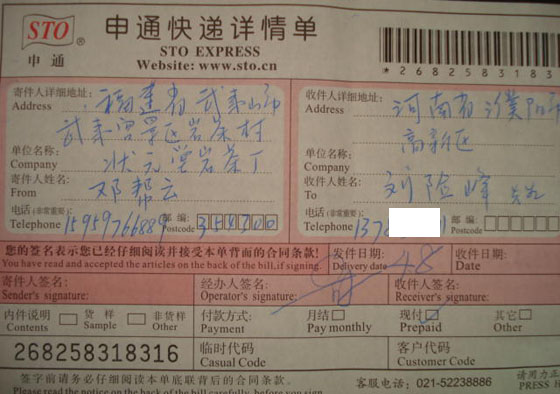 STO ® 申通快递详情单
申通 STO EXPRESS
Website: www.sto.cn
*268258318
寄件人详细地址: 福建省武夷山市
Address
武夷宫景区岩茶村
单位名称:
Company 状元堂岩茶厂
寄件人姓名:
From 邓帮云
电话(非常重要): 15959766889 邮编: 354300
Telephone Postcode
收件人详细地址: 河南省濮阳市
Address
高新区
单位名称:
Company
收件人姓名:
To 刘险峰
电话(非常重要): 1378 邮编:
Telephone Postcode
您的签名表示您已经仔细阅读并接受本单背面的合同条款! 发件日期: 收件日期:
You have read and accepted the articles on the back of the bill,if signing. Delivery date 4.8 Date
寄件人签名: 经办人签名: 收件人签名:
Sender's signature: Operator's signature: Receiver's signature:
内件说明 货样 非货样 付款方式: 月结 现付 其它
Contents Sample Other Payment Pay monthly Prepaid Other
268258318316 临时代码 客户代码
Casual Code Customer Code
签字前请务必仔细阅读本单底联背后的合同条款! 客服电话: 021-52238886 请用力正
Please read the notice on the back of the bill carefully, before you sign PRESS H